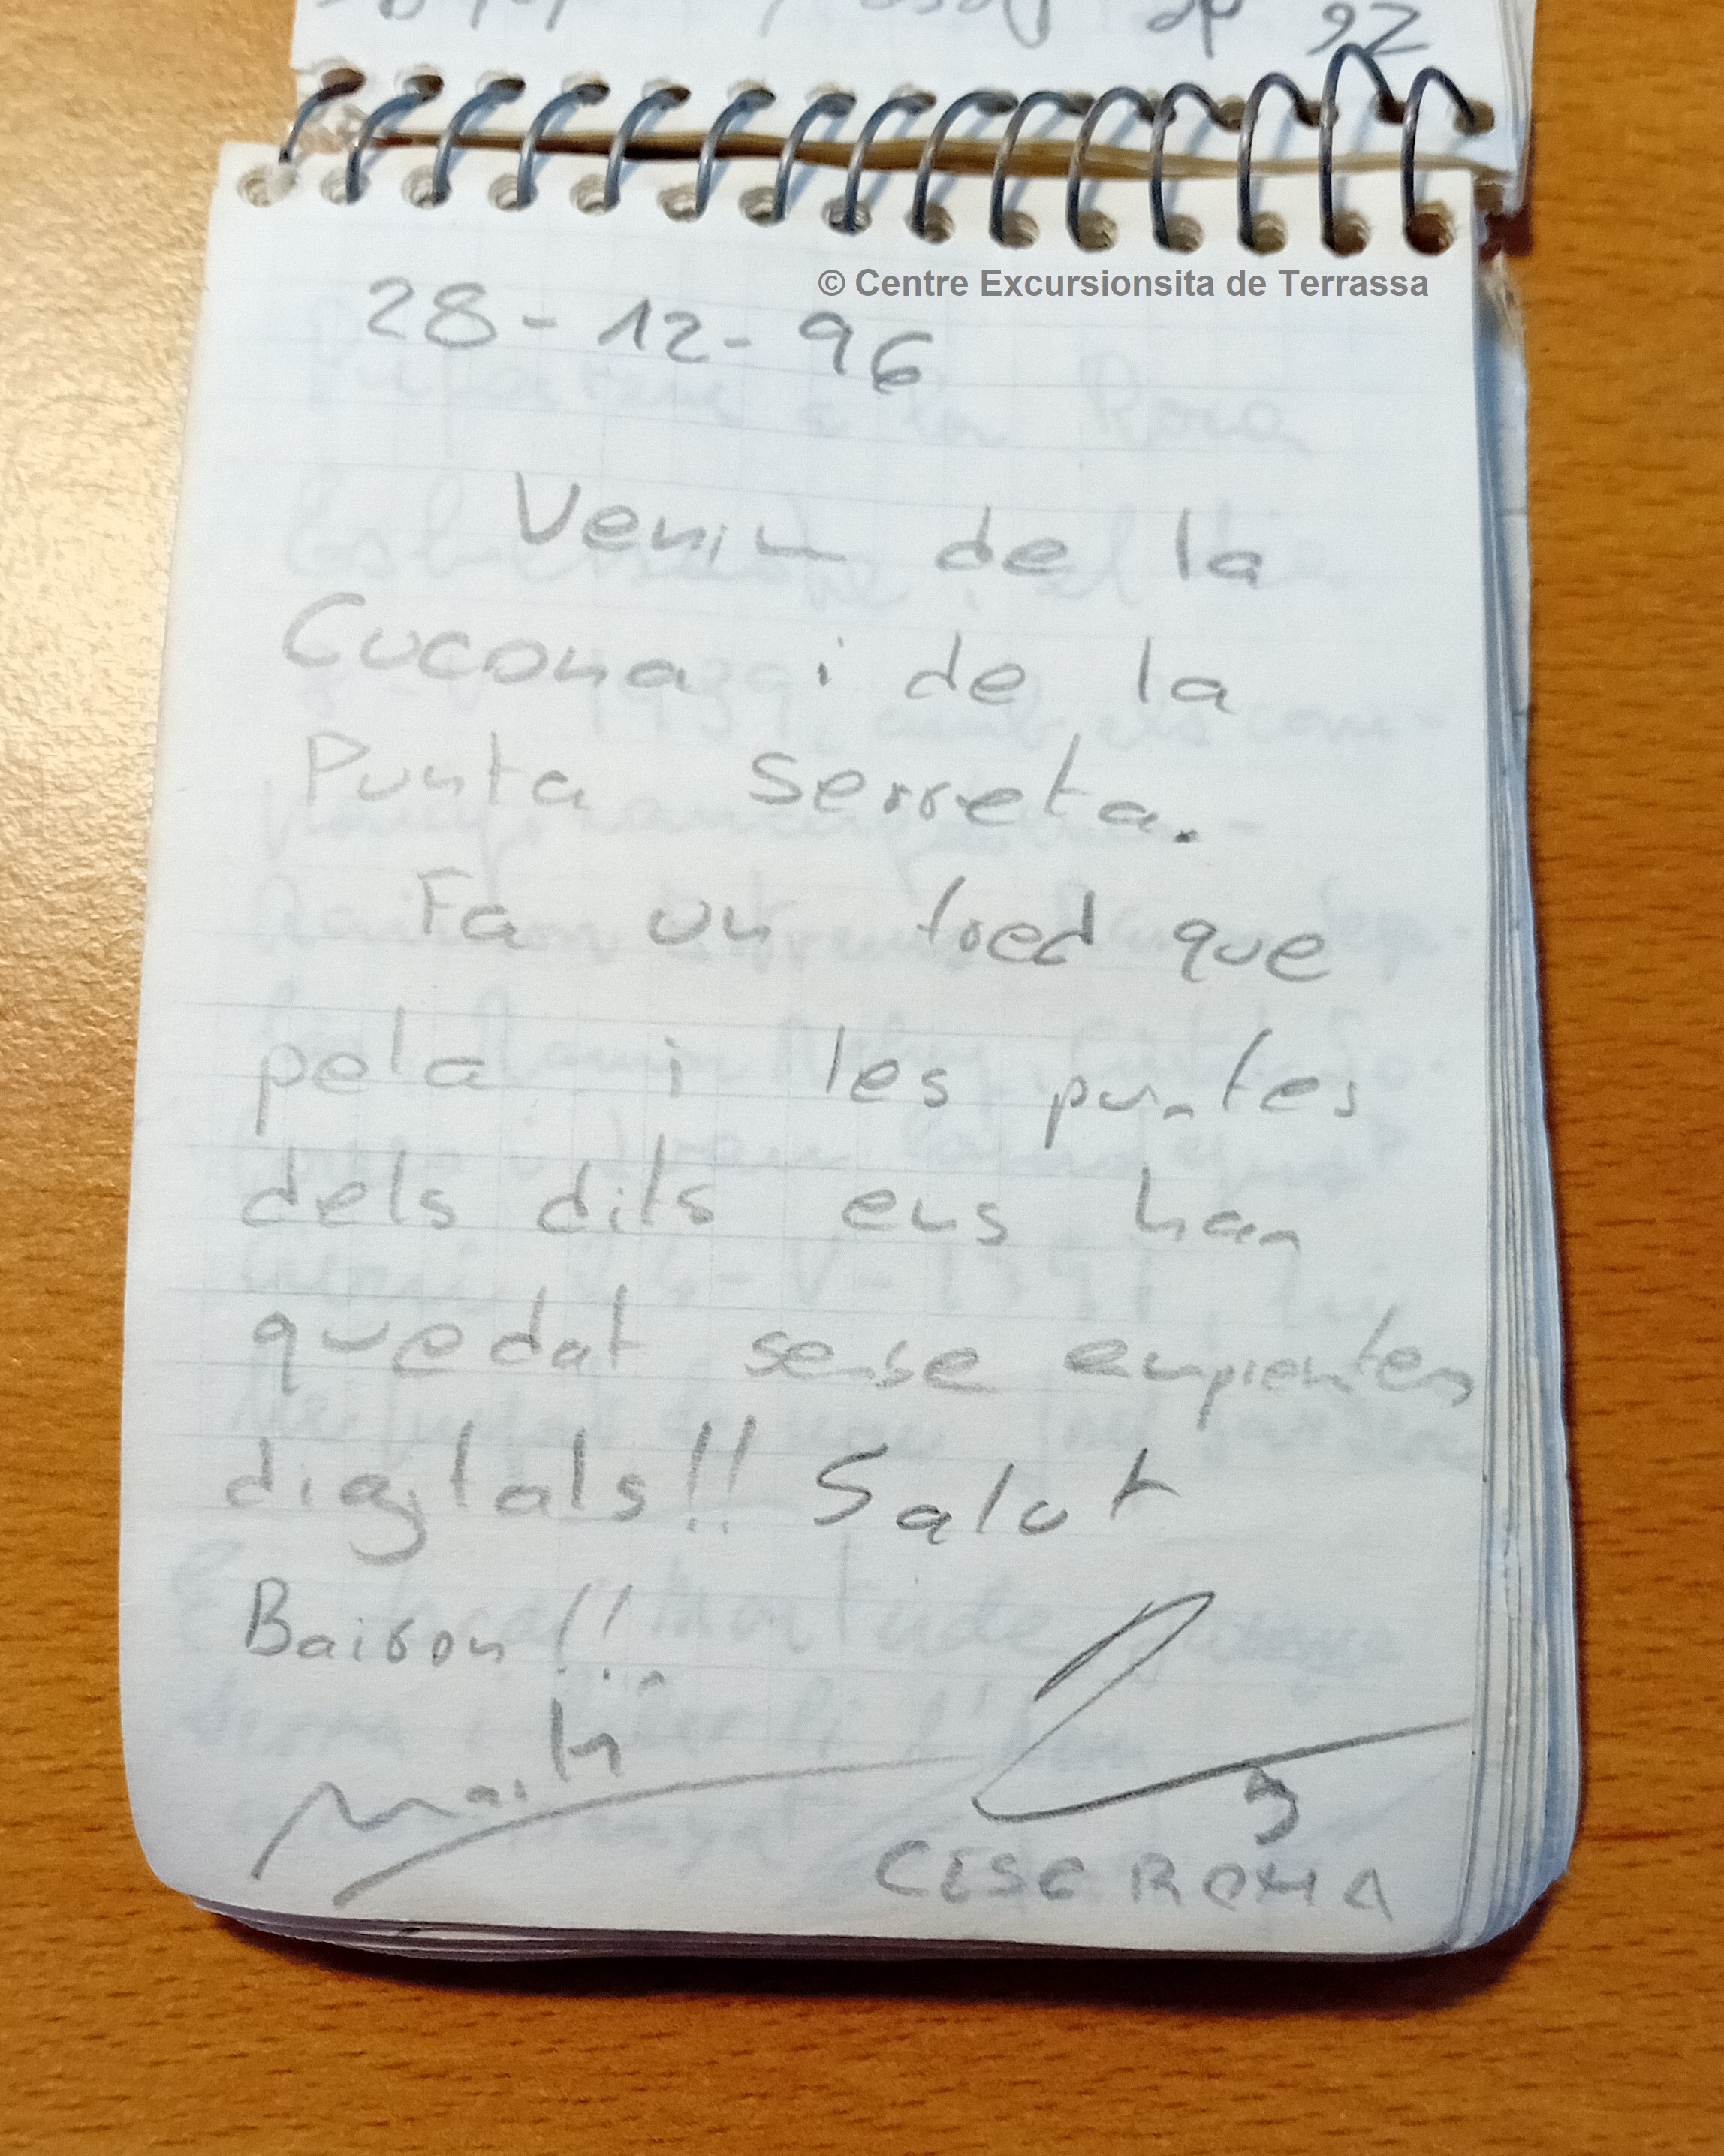 © Centre Excursionsita de Terrassa
28-12-96
Venim de la
Cucona i de la
Punta Serreta.
Fa un fred que
pela i les puntes
dels dits ens han
quedat sense emprentes
digitals!! Salut
Baison!!!
Martí
CESC ROMA